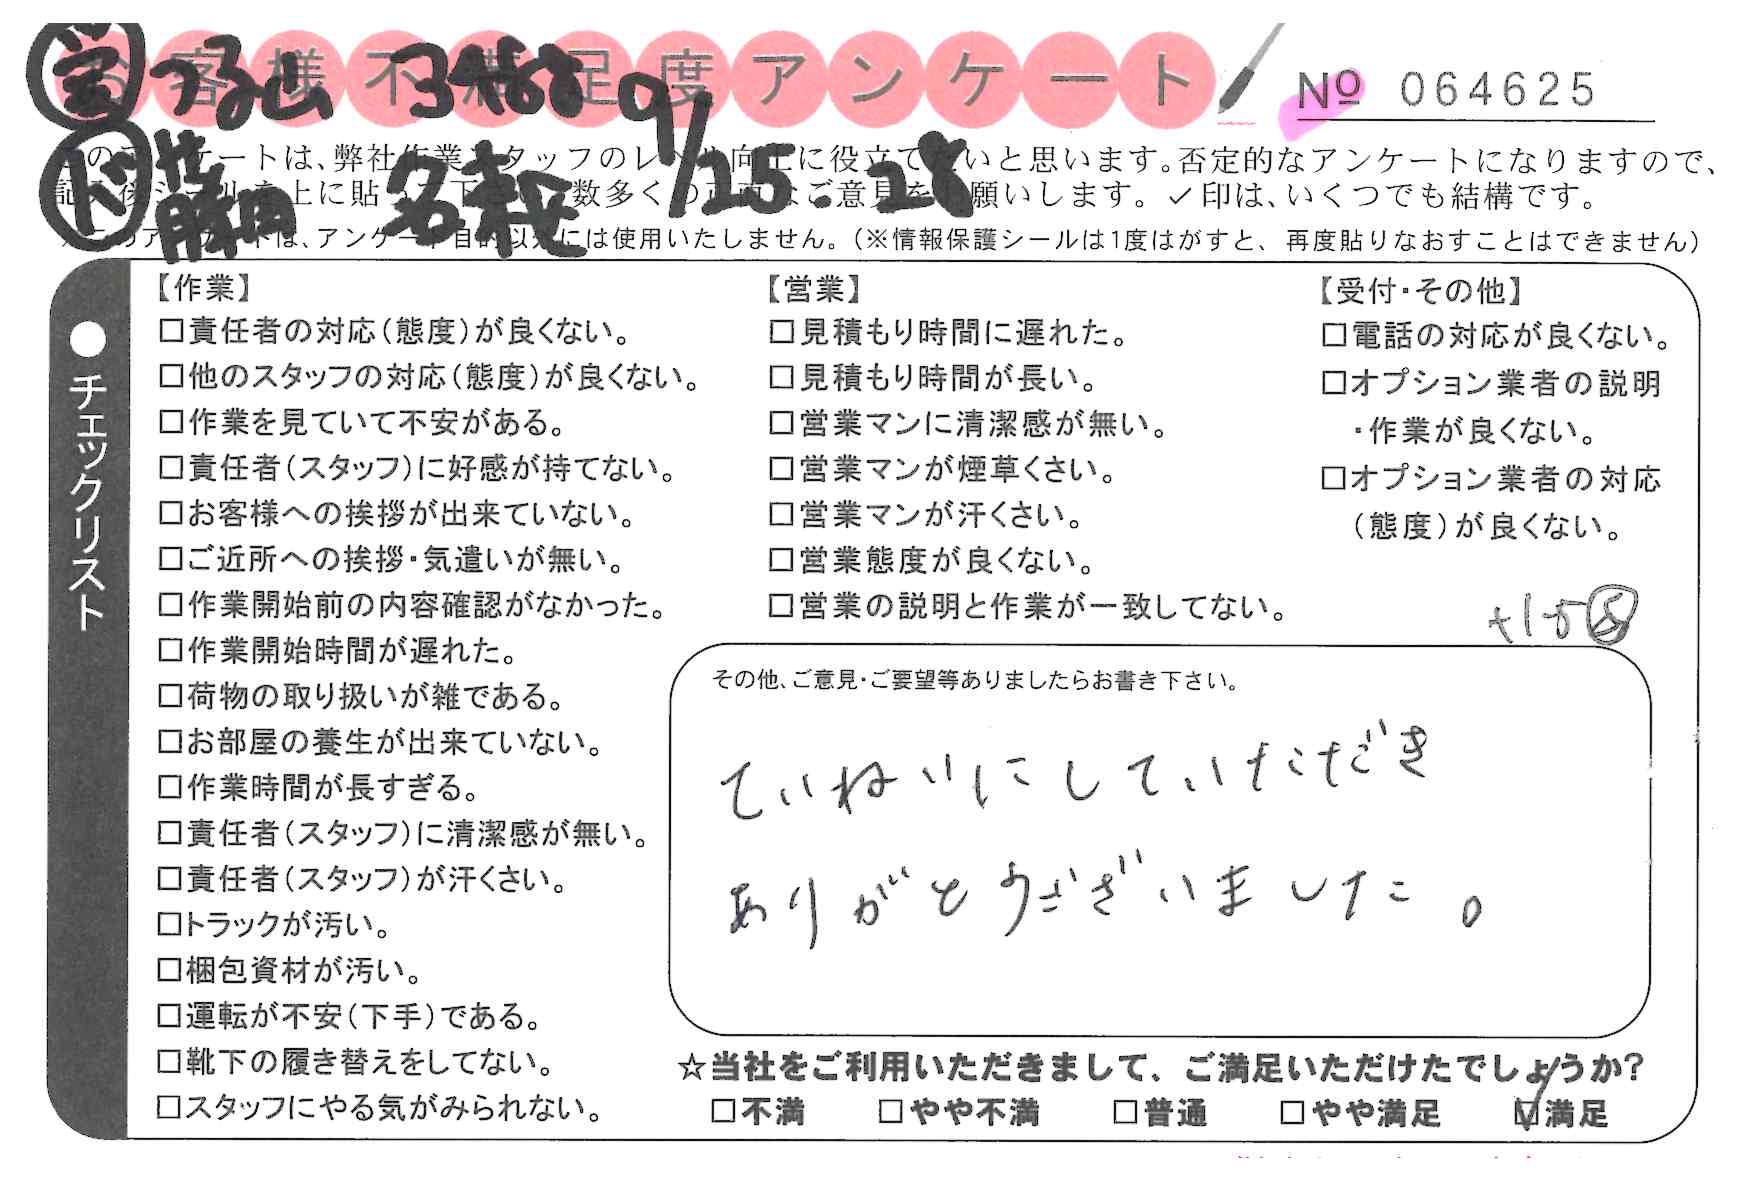 お客様不満足度アンケート
No 064625
このアンケートは、弊社作業スタッフのレベル向上に役立てたいと思います。否定的なアンケートになりますので、
記入後シールを上に貼って下さい。数多くの正直なご意見をお願いします。✓印は、いくつでも結構です。
※このアンケートは、アンケート目的以外には使用いたしません。(※情報保護シールは1度はがすと、再度貼りなおすことはできません)
9/25.28
●チェックリスト
【作業】
□責任者の対応(態度)が良くない。
□他のスタッフの対応(態度)が良くない。
□作業を見ていて不安がある。
□責任者(スタッフ)に好感が持てない。
□お客様への挨拶が出来ていない。
□ご近所への挨拶・気遣いが無い。
□作業開始前の内容確認がなかった。
□作業開始時間が遅れた。
□荷物の取り扱いが雑である。
□お部屋の養生が出来ていない。
□作業時間が長すぎる。
□責任者(スタッフ)に清潔感が無い。
□責任者(スタッフ)が汗くさい。
□トラックが汚い。
□梱包資材が汚い。
□運転が不安(下手)である。
□靴下の履き替えをしてない。
□スタッフにやる気がみられない。
【営業】
□見積もり時間に遅れた。
□見積もり時間が長い。
□営業マンに清潔感が無い。
□営業マンが煙草くさい。
□営業マンが汗くさい。
□営業態度が良くない。
□営業の説明と作業が一致してない。
【受付・その他】
□電話の対応が良くない。
□オプション業者の説明
・作業が良くない。
□オプション業者の対応
(態度)が良くない。
その他、ご意見・ご要望等ありましたらお書き下さい。
ていねいにしていただき
ありがとうございました。
☆当社をご利用いただきまして、ご満足いただけたでしょうか?
□不満 □やや不満 □普通 □やや満足 ☑満足